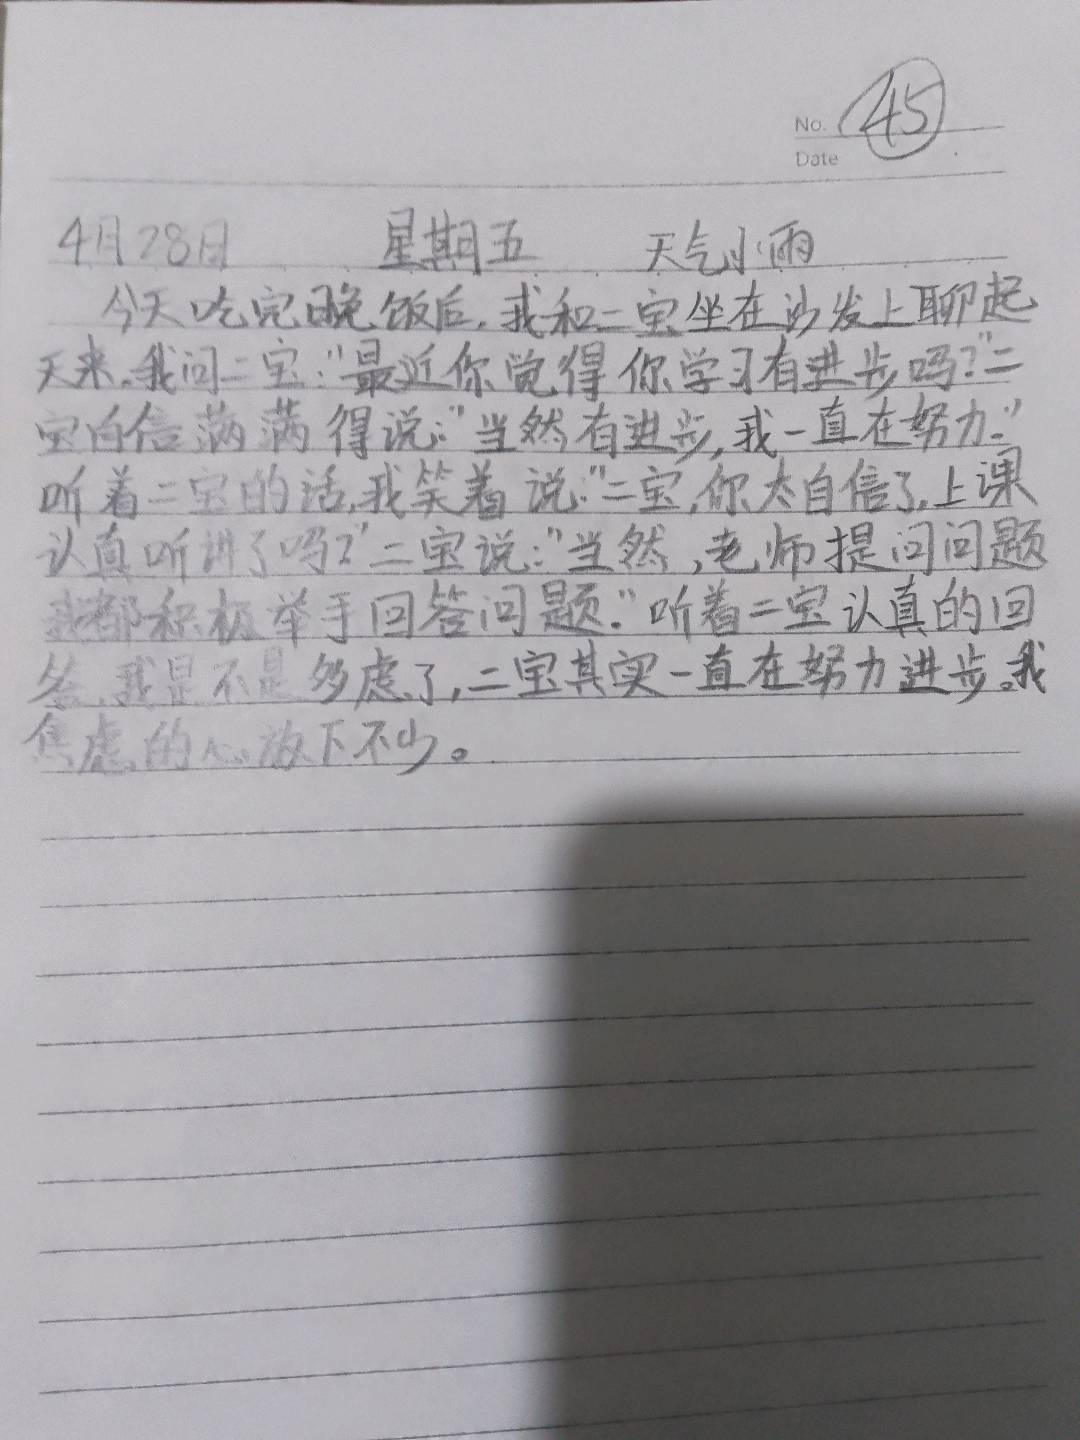 No. 45
Date
4月28日 星期五 天气小雨
今天吃完晚饭后,我和二宝坐在沙发上聊起
天来。我问二宝:"最近你觉得你学习有进步吗?"二
宝自信满满得说:"当然有进步,我一直在努力。"
听着二宝的话,我笑着说:"二宝,你太自信了,上课
认真听讲了吗?"二宝说:"当然,老师提问问题
我都积极举手回答问题。"听着二宝认真的回
答,我是不是多虑了,二宝其实一直在努力进步。我
焦虑的心放下不少。